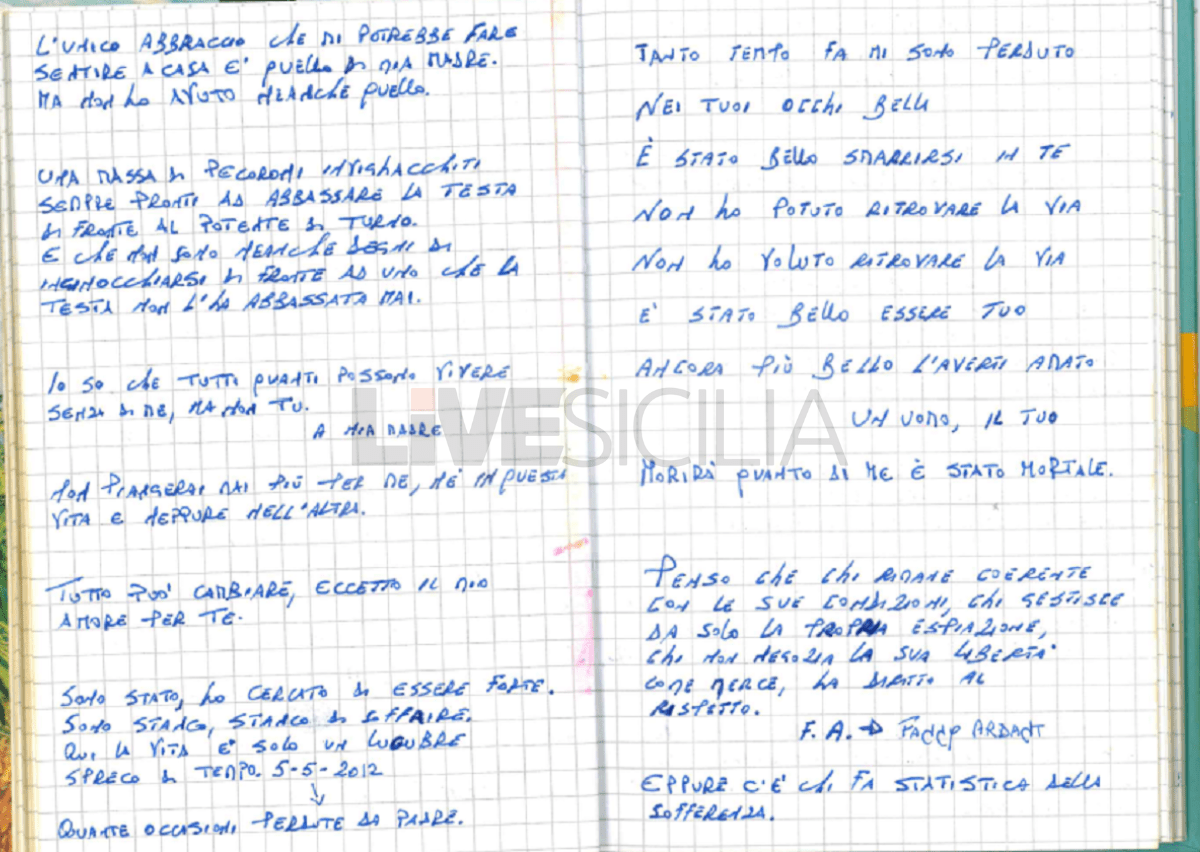 L'UNICO ABBRACCIO CHE MI POTREBBE FARE
SENTIRE A CASA E' QUELLO DI MIA MADRE.
MA NON HO AVUTO NEANCHE QUELLO.
UNA MASSA DI PECORONI INVIGHACCHITI
SEMPRE PRONTI AD ABBASSARE LA TESTA
DI FRONTE AL POTENTE DI TURNO.
E CHE NON SONO NEANCHE DEGNI DI
INGINOCCHIARSI DI FRONTE AD UNO CHE LA
TESTA NON L'HA ABBASSATA MAI.
IO SO CHE TUTTI QUANTI POSSONO VIVERE
SENZA DI ME, MA NON TU.
A MIA MADRE
NON PIANGERAI MAI PIÙ PER ME, NÉ IN QUESTA
VITA E NEPPURE NELL'ALTRA.
TUTTO PUO' CAMBIARE, ECCETTO IL MIO
AMORE PER TE.
SONO STATO, HO CERCATO DI ESSERE FORTE.
SONO STANCO, STANCO DI SOFFRIRE.
QUI LA VITA E' SOLO UN LUGUBRE
SPRECO DI TEMPO. 5-5-2012
↓
QUANTE OCCASIONI PERDUTE DA PADRE.
TANTO TEMPO FA MI SONO PERDUTO
NEI TUOI OCCHI BELLI
È STATO BELLO SMARRIRSI IN TE
NON HO POTUTO RITROVARE LA VIA
NON HO VOLUTO RITROVARE LA VIA
E' STATO BELLO ESSERE TUO
ANCORA PIÙ BELLO L'AVERTI AMATO
UN UOMO, IL TUO
MORIRÀ QUANTO DI ME È STATO MORTALE.
PENSO CHE CHI RIMANE COERENTE
CON LE SUE CONVINZIONI, CHI GESTISCE
DA SOLO LA PROPRIA ESPIAZIONE,
CHI NON NEGOZIA LA SUA LIBERTA'
COME MERCE, HA DIRITTO AL
RISPETTO.
F. A. → FANNY ARDANT
EPPURE C'E' CHI FA STATISTICA DELLA
SOFFERENZA.
LiVESICILIA